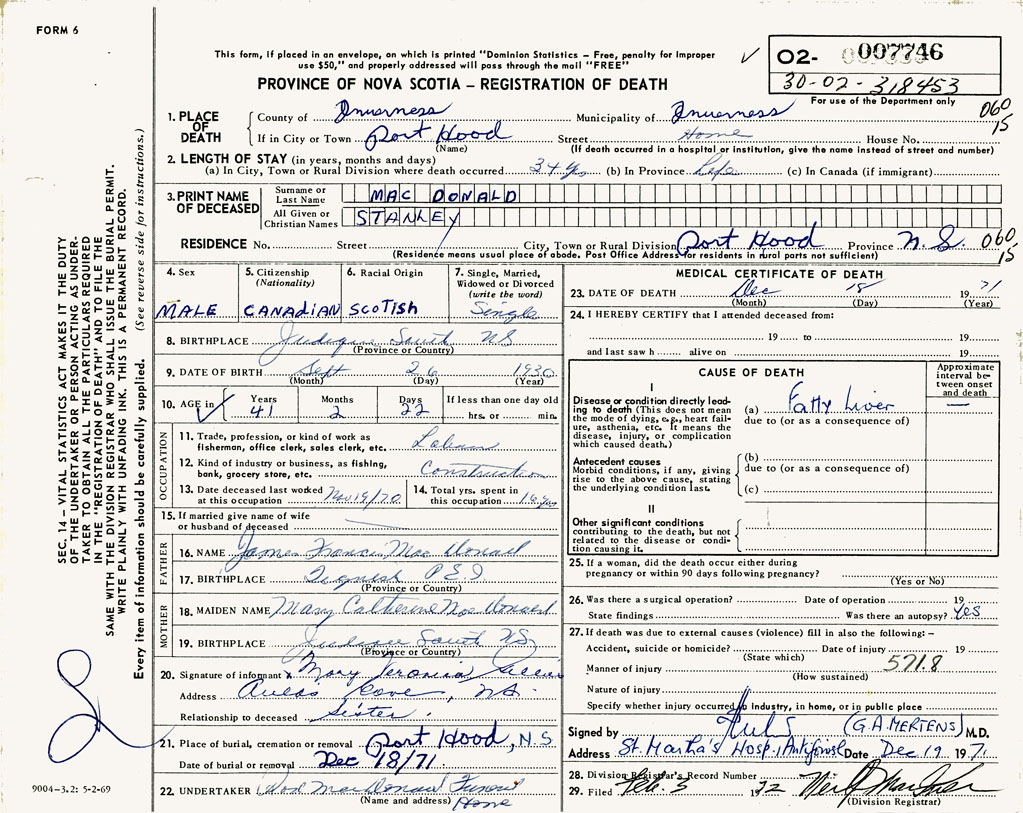 FORM 6
This form, if placed in an envelope, on which is printed "Dominion Statistics – Free, penalty for improper
use $50," and properly addressed will pass through the mail "FREE"
PROVINCE OF NOVA SCOTIA – REGISTRATION OF DEATH
02- 007746
30-02-318453
For use of the Department only
060
15
1. PLACE OF DEATH
County of Inverness Municipality of Inverness
If in City or Town Port Hood Street Home House No.
(Name) (If death occurred in a hospital or institution, give the name instead of street and number)
2. LENGTH OF STAY (in years, months and days)
(a) In City, Town or Rural Division where death occurred 34 yrs (b) In Province Life (c) In Canada (if immigrant)
3. PRINT NAME OF DECEASED
Surname or Last Name MAC DONALD
All Given or Christian Names STANLEY
RESIDENCE No. Street City, Town or Rural Division Port Hood Province N.S. 060
15
(Residence means usual place of abode. Post Office Address for residents in rural parts not sufficient)
4. Sex MALE
5. Citizenship (Nationality) CANADIAN
6. Racial Origin SCOTISH
7. Single, Married, Widowed or Divorced (write the word) Single
8. BIRTHPLACE South NS
(Province or Country)
9. DATE OF BIRTH Sept 26 1930
(Month) (Day) (Year)
10. AGE in Years 41 Months 2 Days 22 If less than one day old hrs. or min.
OCCUPATION
11. Trade, profession, or kind of work as
fisherman, office clerk, sales clerk, etc.
12. Kind of industry or business, as fishing,
bank, grocery store, etc. Construction
13. Date deceased last worked
at this occupation Nov 19/70
14. Total yrs. spent in
this occupation 16 yrs
15. If married give name of wife
or husband of deceased
FATHER
16. NAME James Francis Mac Donald
17. BIRTHPLACE Tignish P.E.I.
(Province or Country)
MOTHER
18. MAIDEN NAME Mary Catherine Mac Donald
19. BIRTHPLACE South NS
(Province or Country)
20. Signature of informant x Mary Veronica
Address Cove, NS.
Relationship to deceased Sister.
21. Place of burial, cremation or removal Port Hood, N.S
Date of burial or removal Dec 18/71
22. UNDERTAKER MacDonald Funeral
(Name and address) Home
MEDICAL CERTIFICATE OF DEATH
23. DATE OF DEATH Dec 18 1971
(Month) (Day) (Year)
24. I HEREBY CERTIFY that I attended deceased from:
19 to 19
and last saw h alive on 19
CAUSE OF DEATH
Approximate interval between onset and death
I
Disease or condition directly leading to death (This does not
mean the mode of dying, e.g., heart failure, asthenia, etc. It means the
disease, injury, or complication
which caused death.)
(a) Fatty Liver —
due to (or as a consequence of)
Antecedent causes
Morbid conditions, if any, giving
rise to the above cause, stating
the underlying condition last.
(b)
due to (or as a consequence of)
(c)
II
Other significant conditions
contributing to the death, but not
related to the disease or condition causing it.
25. If a woman, did the death occur either during
pregnancy or within 90 days following pregnancy?
(Yes or No)
26. Was there a surgical operation? Date of operation 19
State findings Was there an autopsy? Yes
27. If death was due to external causes (violence) fill in also the following: –
Accident, suicide or homicide? Date of injury 19
(State which)
Manner of injury 571.8
(How sustained)
Nature of injury
Specify whether injury occurred to industry, in home, or in public place
Signed by (G.A. MERTENS) M.D.
Address St. Martha's Hosp., Antigonish Date Dec 19 1971
28. Division Registrar's Record Number
29. Filed Feb. 5 1972
(Division Registrar)
SEC. 14 – VITAL STATISTICS ACT MAKES IT THE DUTY
OF THE UNDERTAKER OR PERSON ACTING AS UNDER-
TAKER TO OBTAIN ALL THE PARTICULARS REQUIRED
IN THE "REGISTRATION OF DEATH" AND TO FILE THE
SAME WITH THE DIVISION REGISTRAR WHO SHALL ISSUE THE BURIAL PERMIT.
WRITE PLAINLY WITH UNFADING INK. THIS IS A PERMANENT RECORD.
Every item of information should be carefully supplied. (See reverse side for instructions.)
9004-3.2: 5-2-69